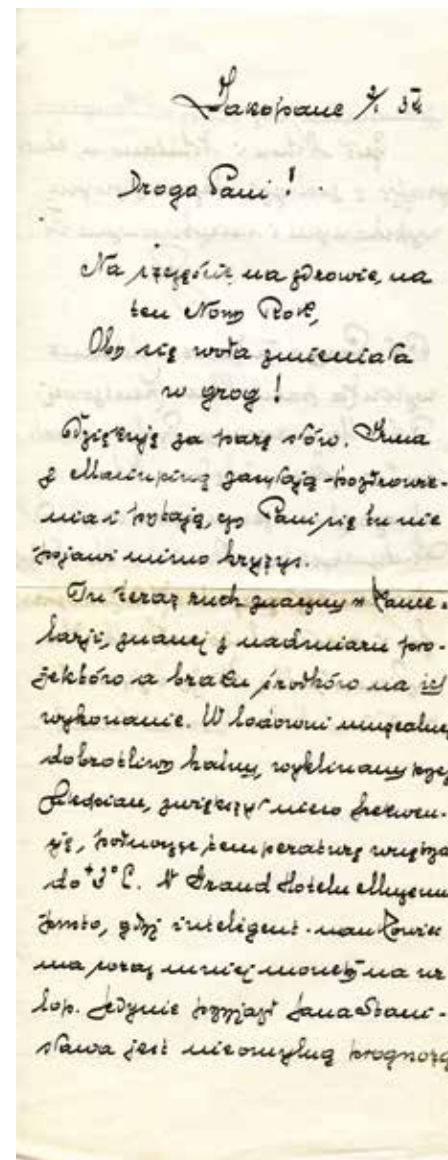 Zakopane 2/I 34
Droga Pani!
Na szczęście, na zdrowie, na
ten Nowy Rok,
Oby się woda zmieniała
w grog!
Dziękuję za parę słów. Irma
z Malinpiną zasyłają pozdrowie-
nia i pytają, czy Pani się tu nie
pojawi mimo kryzys.
Tu teraz ruch znaczny w kance-
larji, znanej z nadmiaru pro-
jektów a braku środków na ich
wykonanie. W lodowni muzealnej
dobrotliwy halny, wyklinany przez
zwiększył nieco frekwen-
cję, temperaturę wnętrza
do +3° C. W Grand Hotelu Muzeum
pusto, gdyż inteligent-naukowiec
ma coraz mniej monety na ur
lop. Jedynie przyjazd Jana Stani-
sława jest nieomylną prognozą